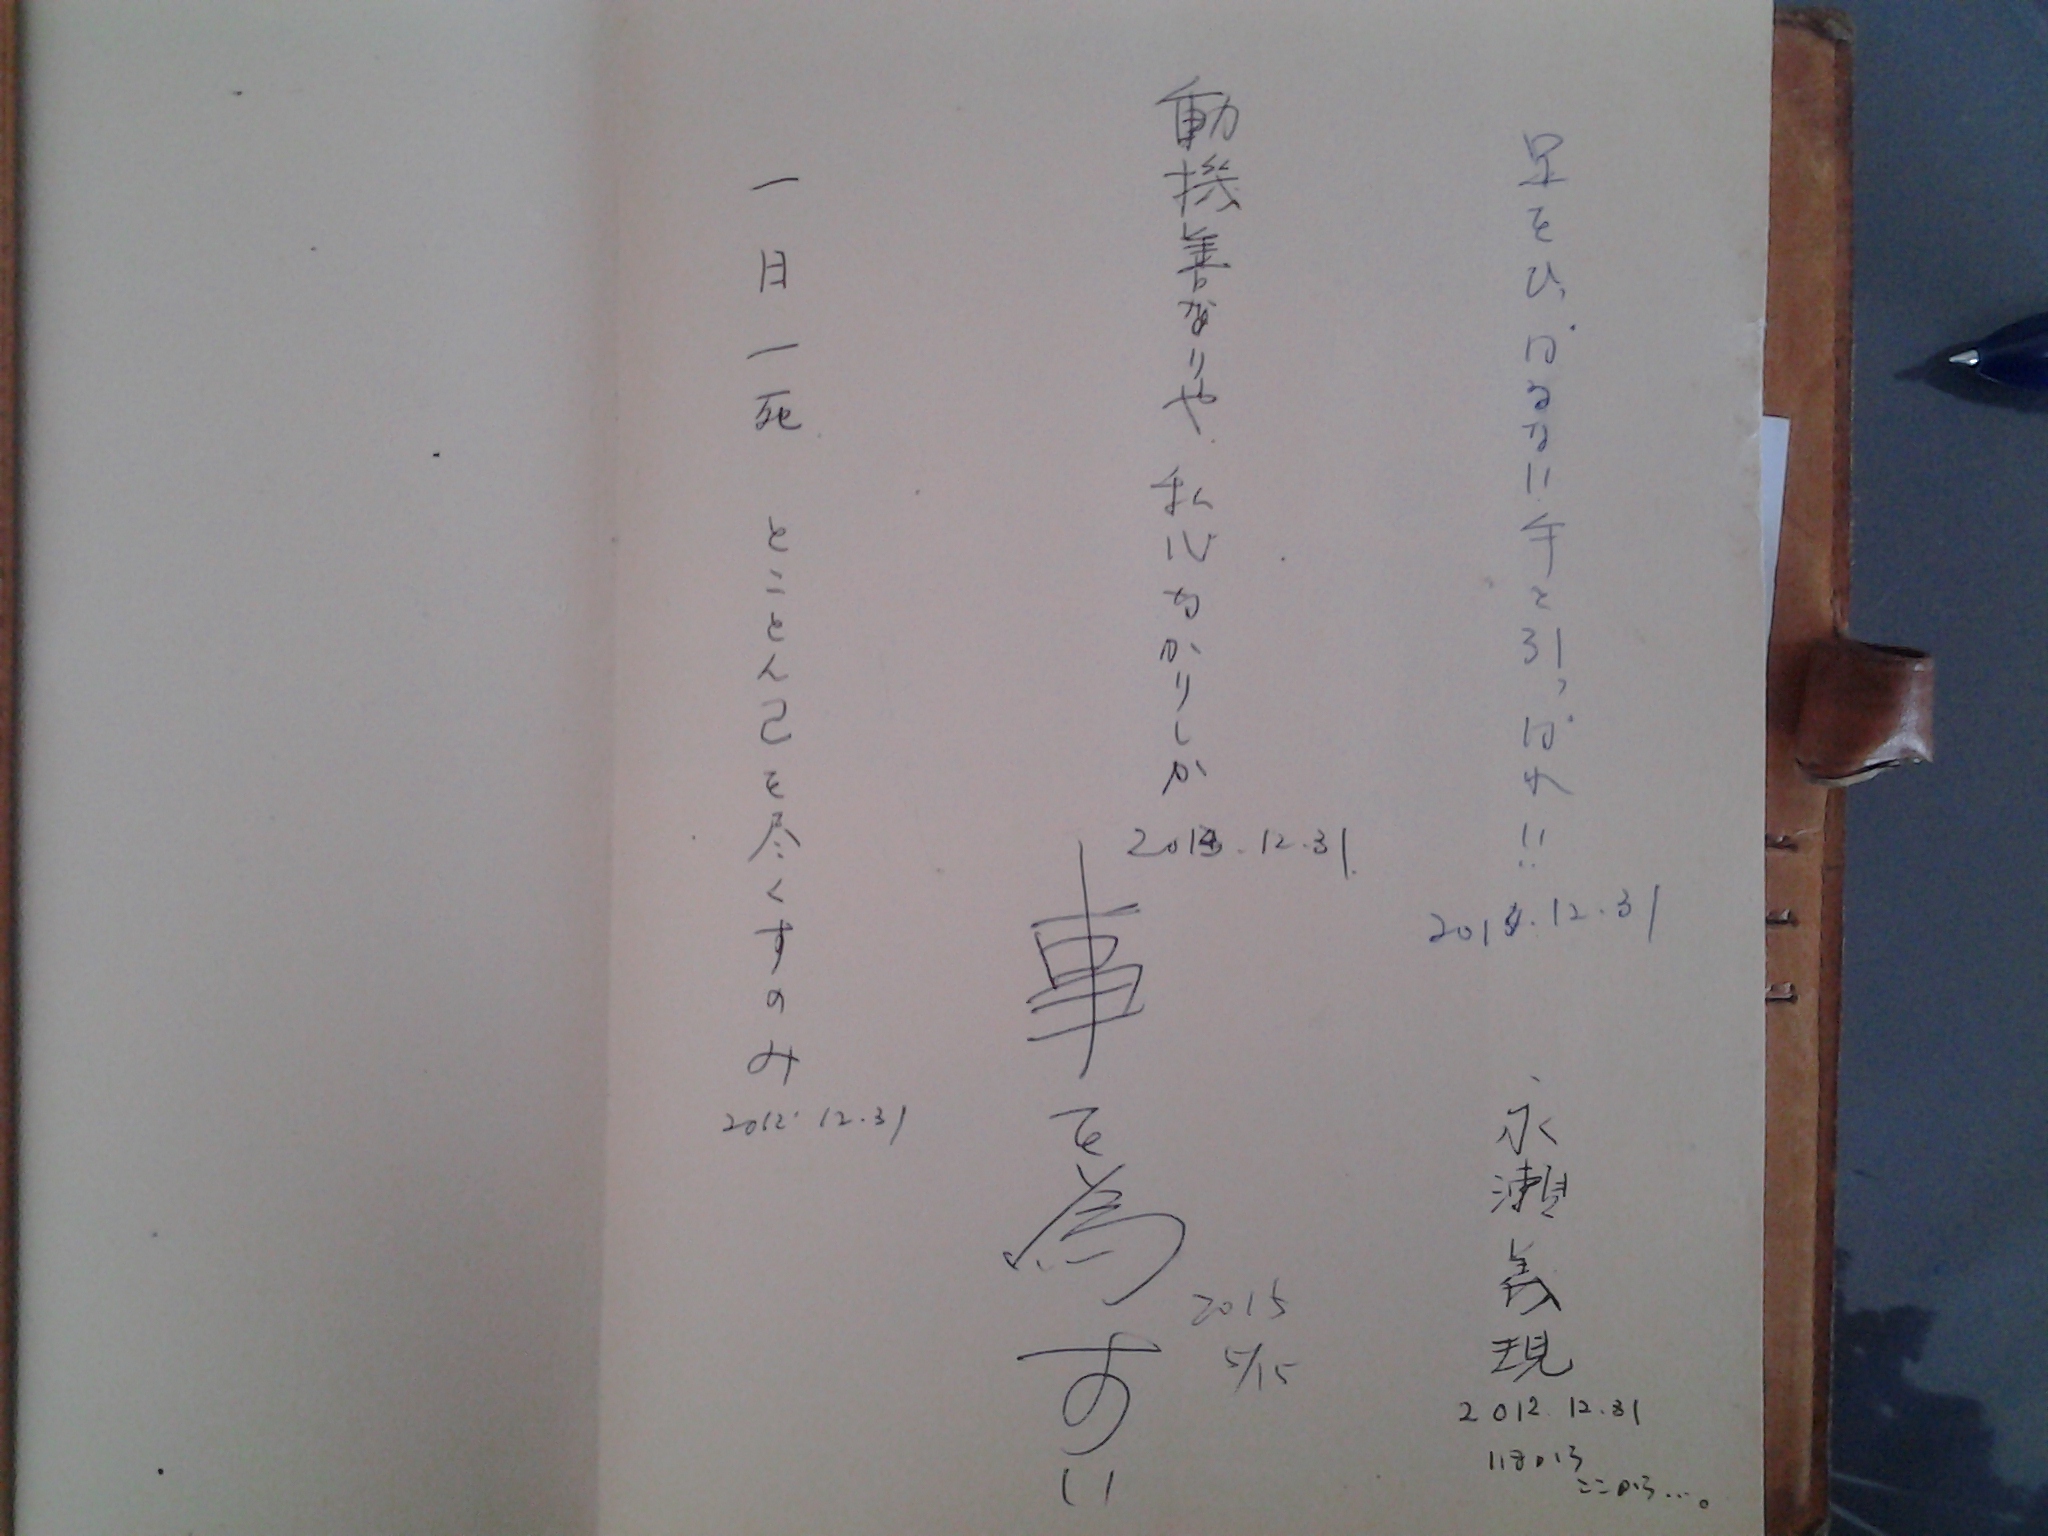 足をひっぱるなに手を引っぱれ!!
201.12.31
永瀬義現
2012.12.31
ここから…。
動機善なりや 私心なかりしか
2013.12.31
事を為すに
2015
5/15
一日一死 とことん己を尽くすのみ
2012.12.31